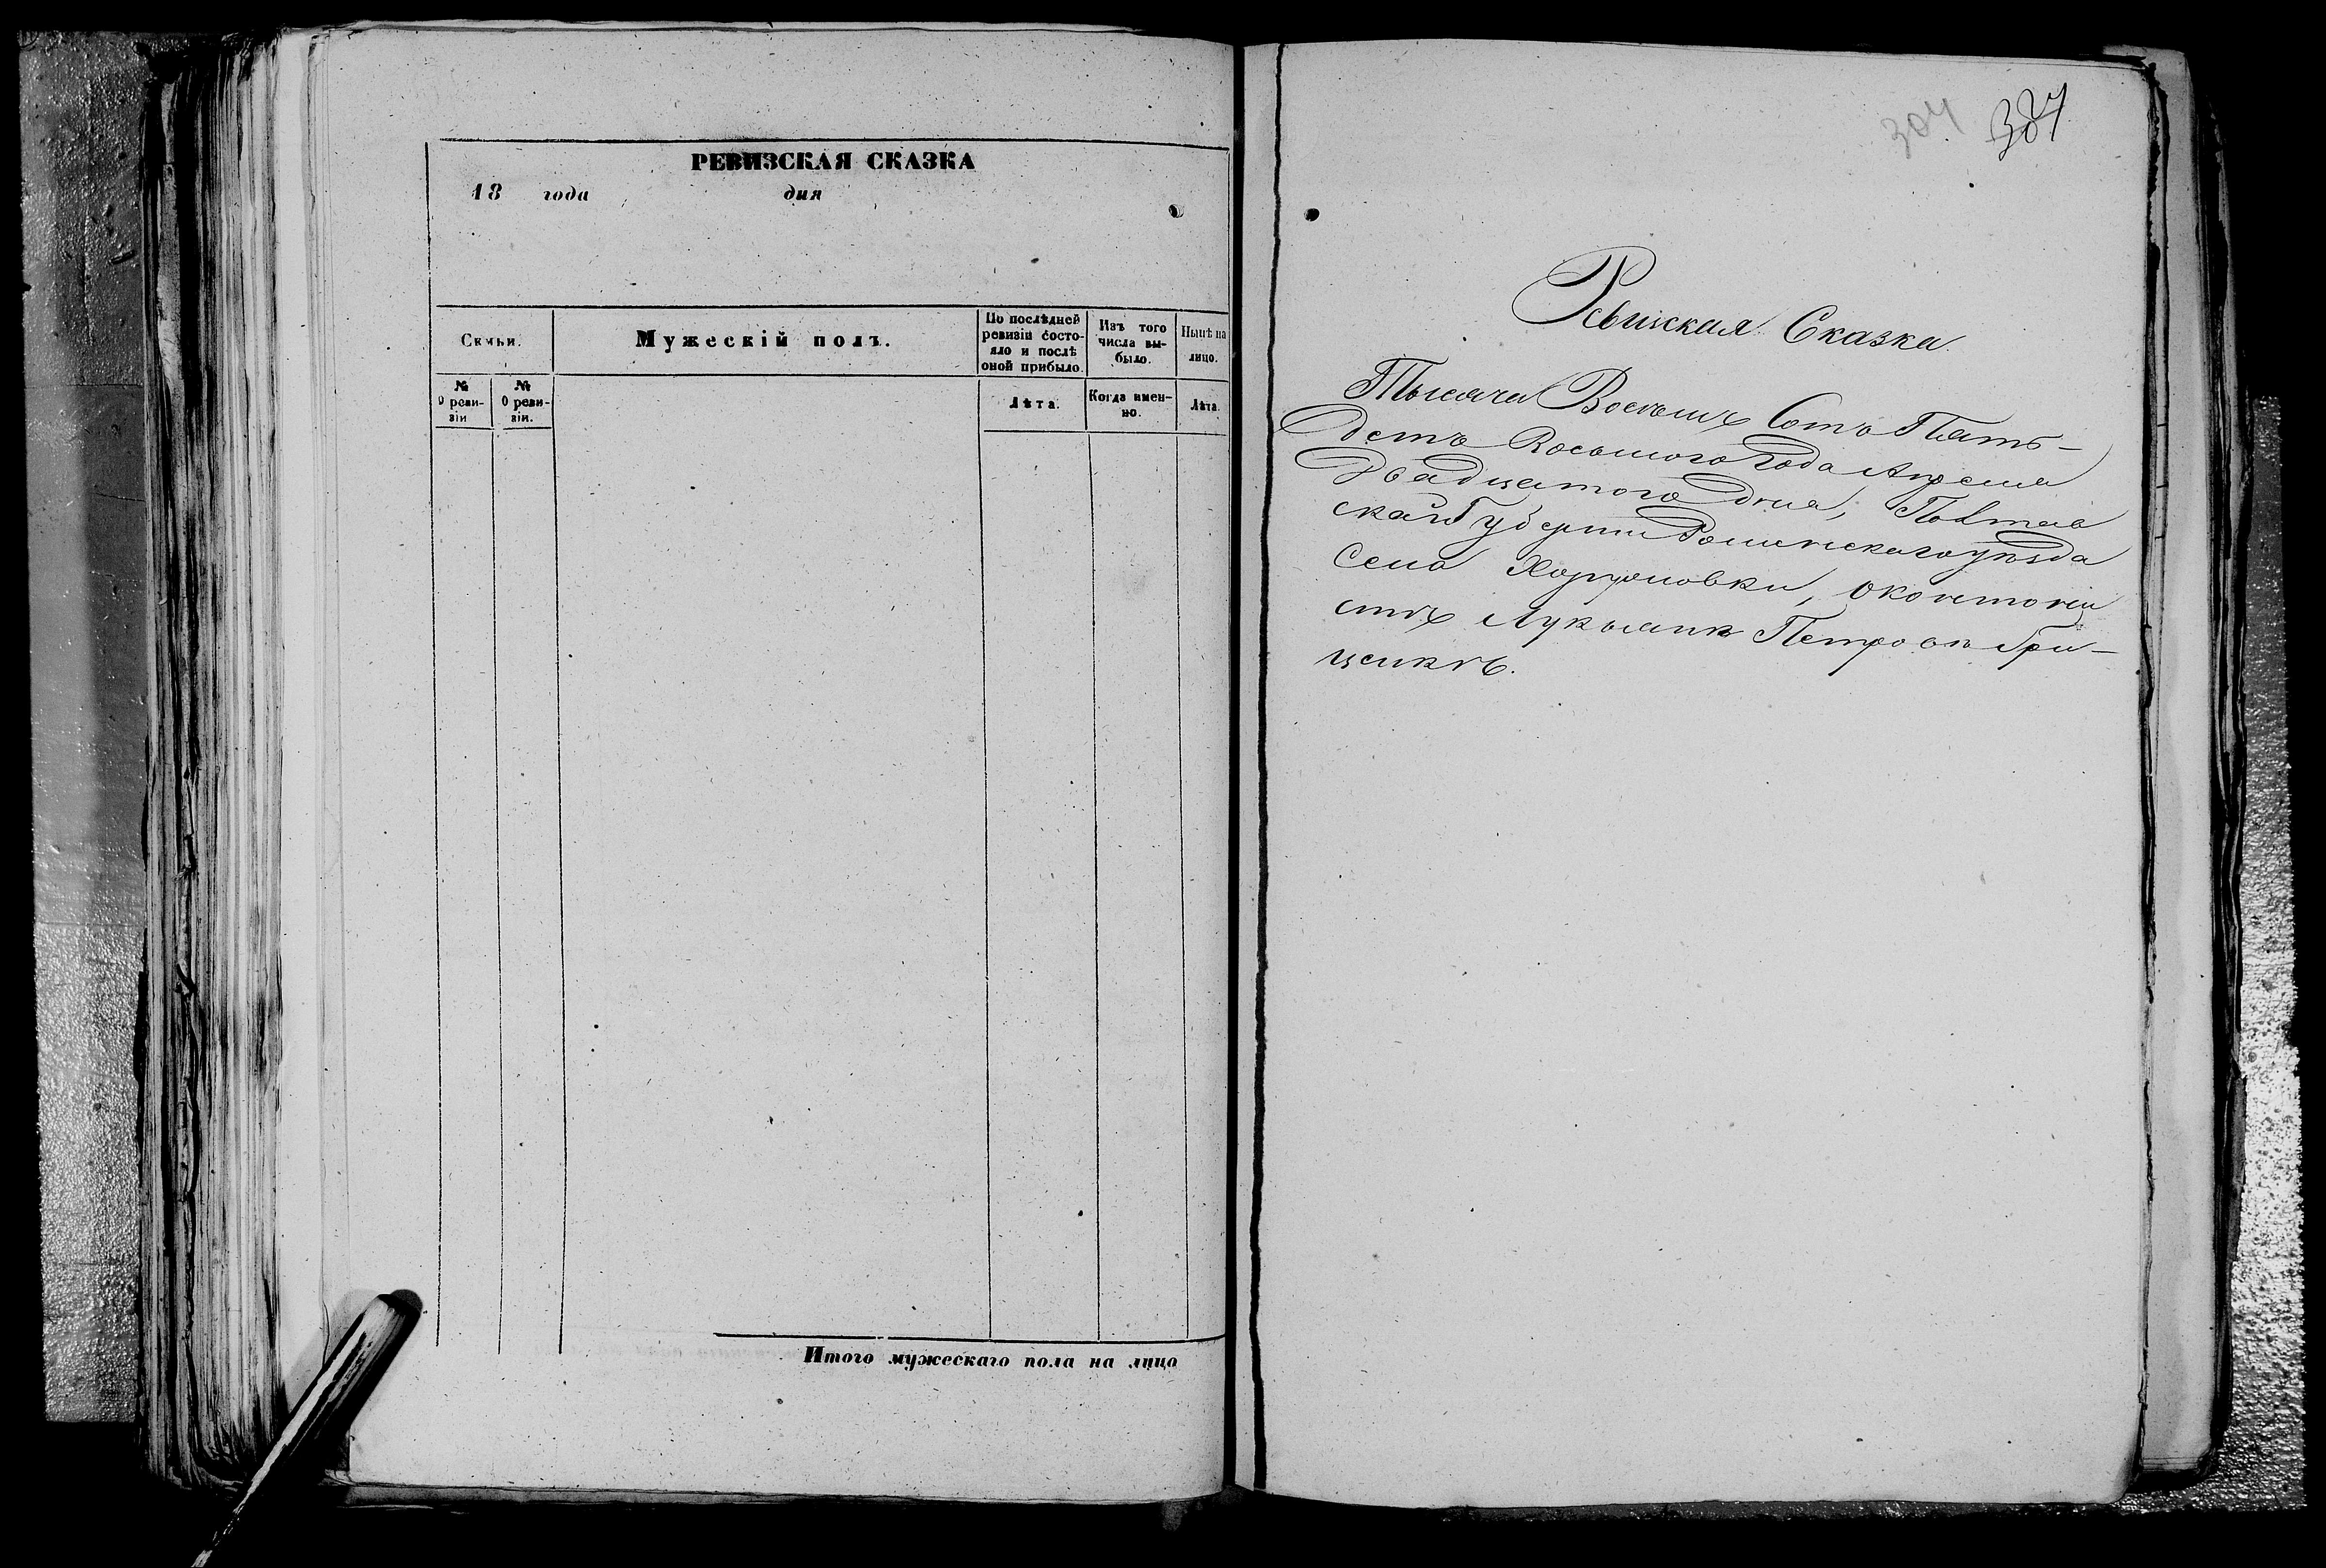 РЕВИЗСКАЯ СКАЗКА
18 года дня
Семьи.
Мужескій полъ.
По послѣдней
ревизіи состо-
яло и послѣ
оной прибыло.
Изъ того
числа вы-
было.
Нынѣ на
лицо.
№
0 реви-
зіи
№
0 реви-
зіи.
Лѣта.
Когда имен-
но.
Лѣта.
Итого мужескаго пола на лицо
304 387
Ревизская Сказка.
Тысяча Восемь Сотъ Пять-
десятъ Восьмого года Апреля
двадцатого дня, Полтав
ской Губерніи Роменского уѣзда
Села
стѣ Лукьянѣ Петровѣ Гри-
ценкѣ.